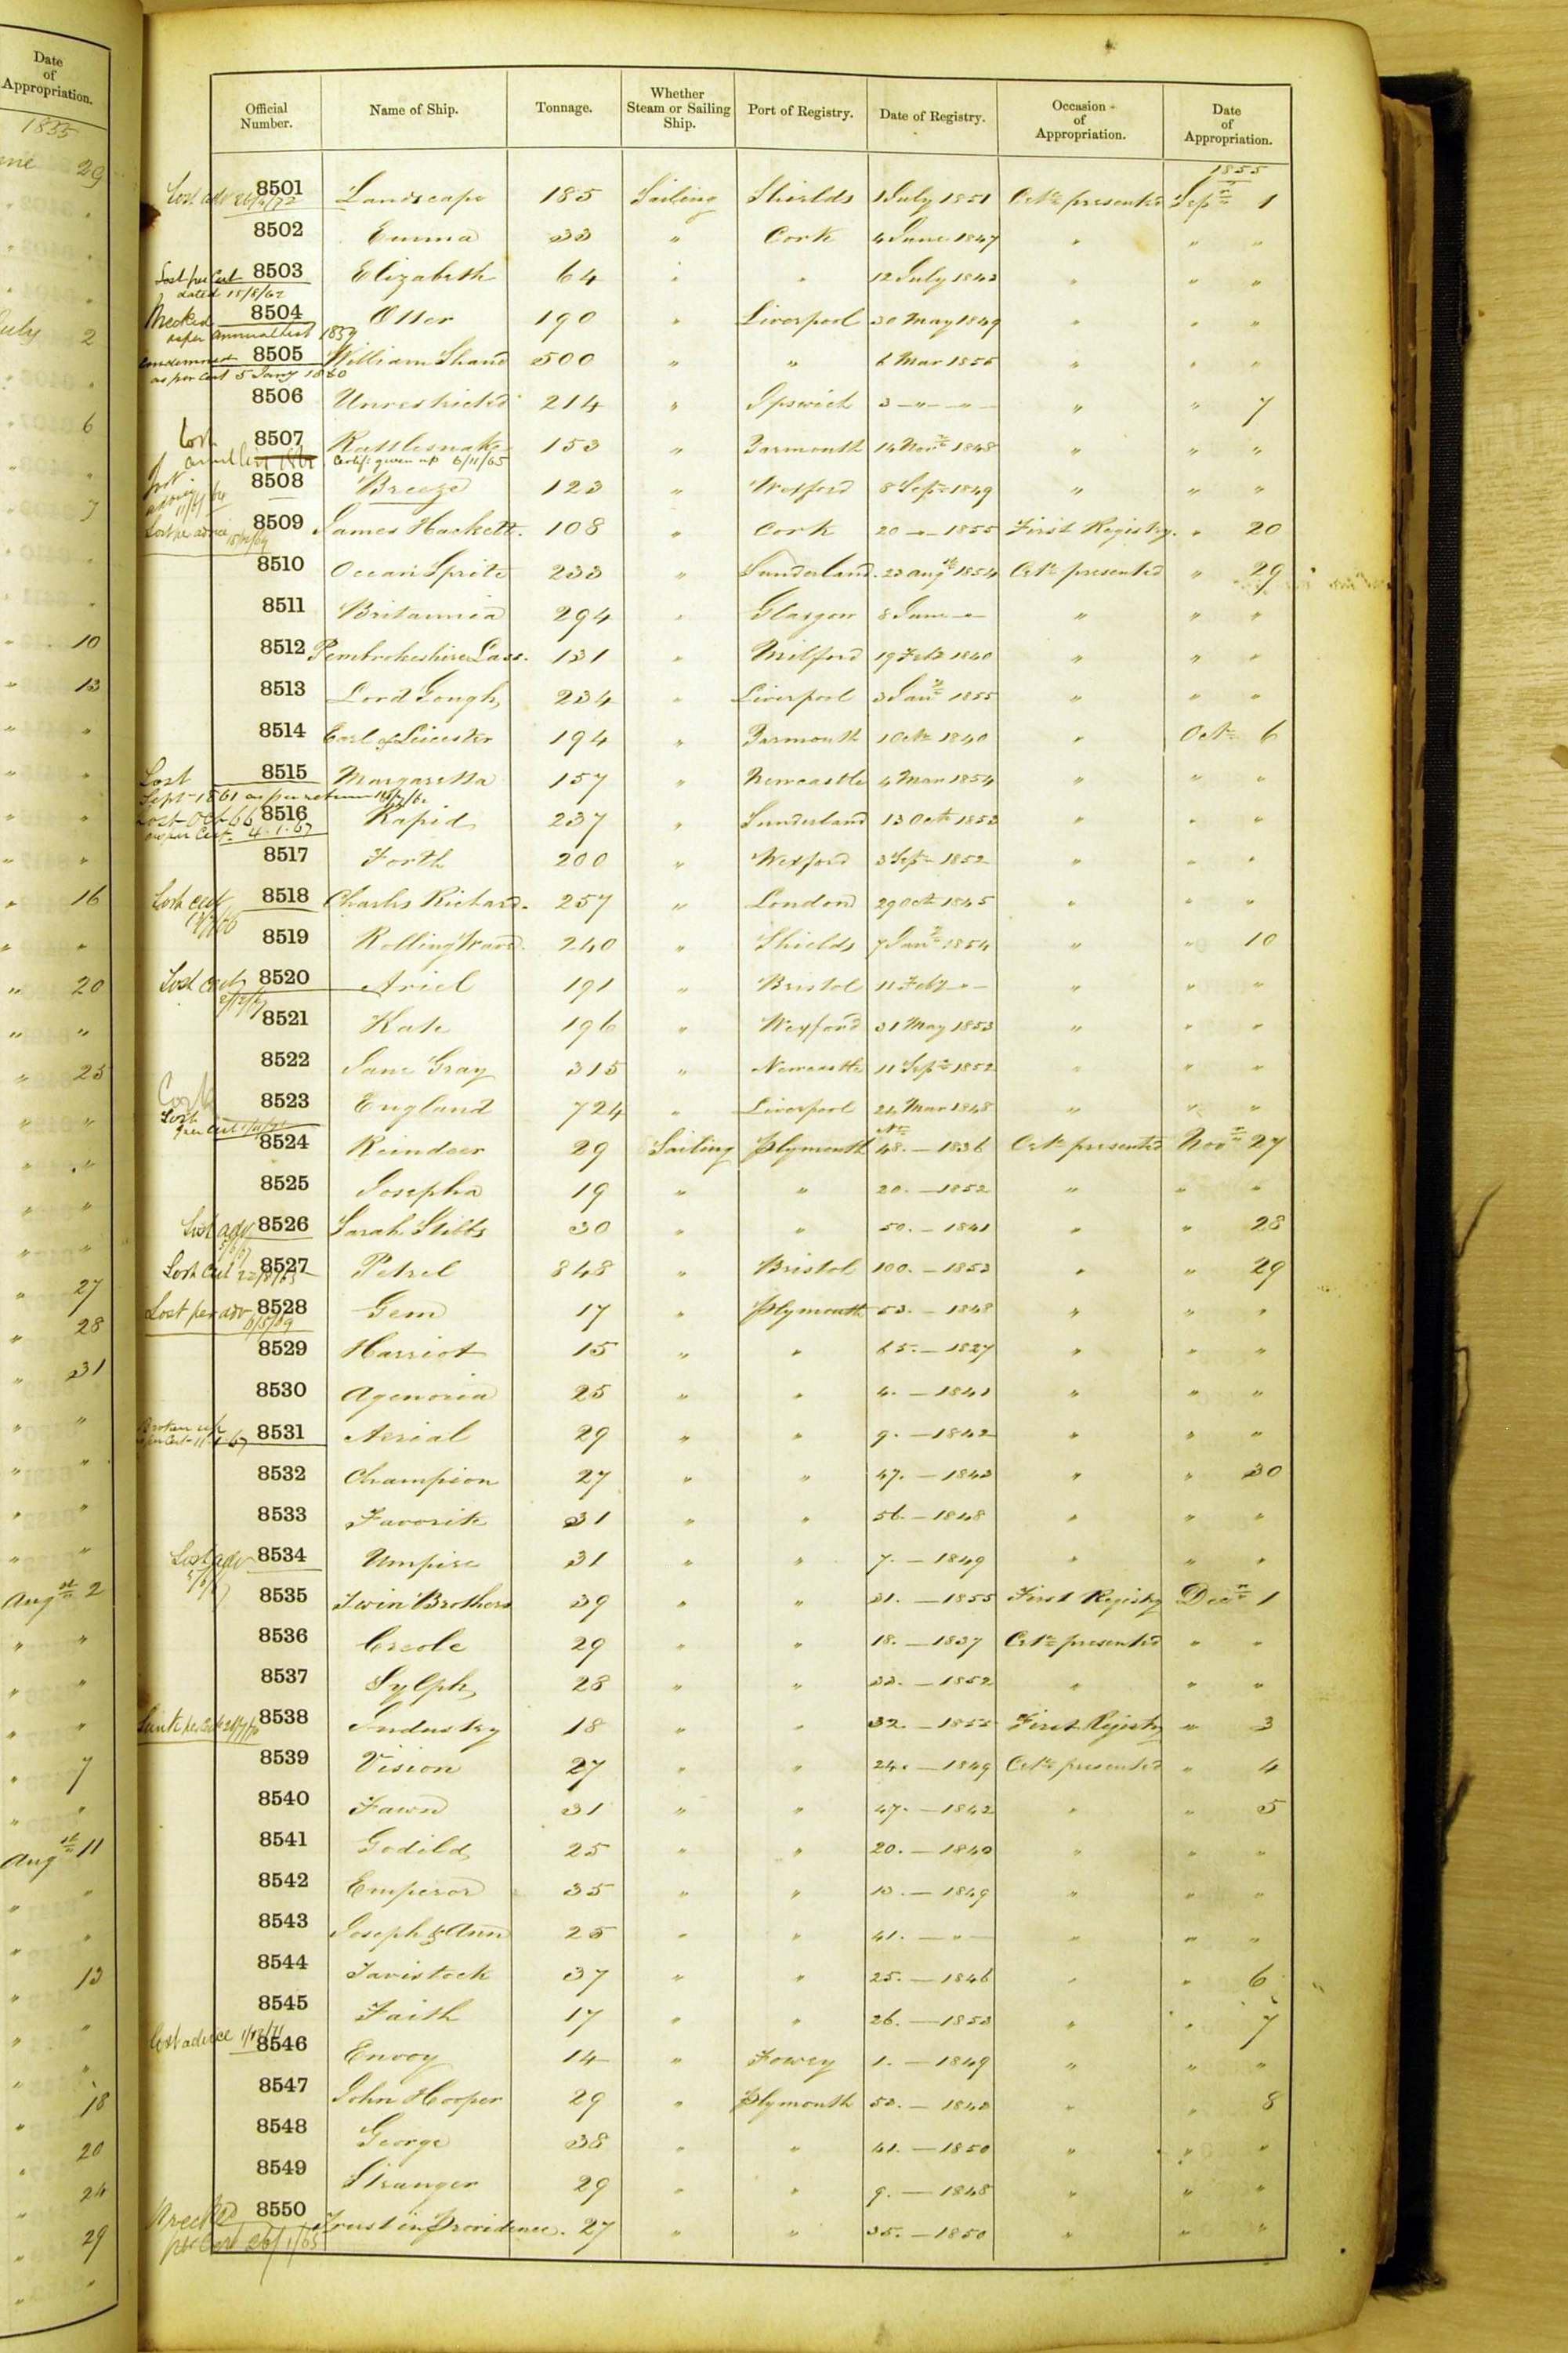 Date
of
Appropriation.
1855
29
July 2
6
7
10
13
" "
" "
" "
" "
16
" "
" 20
" "
" 25
" "
" "
" "
" "
" 27
" 28
" 31
" "
" "
" "
" "
Augst 2
" "
" "
" "
" 7
" "
Augst 11
" "
" "
" 13
" "
" "
" 18
" 20
" 24
" 29
" "
Official Number. Name of Ship. Tonnage. Whether Steam or Sailing Ship. Port of Registry. Date of Registry. Occasion of Appropriation. Date of Appropriation.
1855
Lost adv 8501 Landscape 185 Sailing Shields 1 July 1851 Certe presented Sepr 1
8502 Emma 33 " Cork 4 June 1847 " " "
Lost per Cert 8503 Elizabeth 64 " " 12 July 1843 " " "
dated 15/8/62
Wrecked 8504 Otter 190 " Liverpool 30 May 1849 " " "
as per annual list 1859
Condemned 8505 William Shand 500 " " 6 Mar 1855 " " "
as per Cert 5 Jany 1860
8506 Unrestricted 214 " Ipswich 3 " " " " 7
Lost 8507 Rattlesnake 153 " Yarmouth 14 Novr 1848 " " "
Certif: given up 6/11/65
8508 Breeze 123 " Wexford 8 Sepr 1849 " " "
Lost per advice 8509 James Hackett. 108 " Cork 20 " 1855 First Registry. " 20
8510 Ocean Sprite 233 " Sunderland. 23 Augst 1854 Certe presented " 29
8511 Britannia 294 " Glasgow 8 June " " " "
8512 Pembrokeshire Lass. 131 " Milford 19 Feby 1840 " " "
8513 Lord Gough 234 " Liverpool 3 Jany 1855 " " "
8514 Earl of Leicester 194 " Yarmouth 1 Octr 1840 " Octr 6
Lost 8515 Margaretta 157 " Newcastle 4 Mar 1854 " " "
Sept 1861 as per return
Lost Oct 66 8516 Rapid 237 " Sunderland 13 Octr 1853 " " "
as per Cert. 4.1.67
8517 Forth 200 " Wexford 3 Sepr 1852 " " "
Lost cert 8518 Charles Richard. 257 " London 29 Octr 1845 " " "
8519 Rolling Wave. 240 " Shields 7 Jany 1854 " " 10
Lost cert 8520 Ariel 191 " Bristol 11 Feby " " " "
8521 Kate 196 " Wexford 31 May 1853 " " "
8522 Jane Gray 315 " Newcastle 11 Sepr 1852 " " "
8523 England 724 " Liverpool 24 Mar 1848 " " "
Lost per Cert
8524 Reindeer 29 Sailing Plymouth No 48. – 1836 Certe presented Novr 27
8525 Josepha 19 " " 20. – 1852 " " "
Lost adv 8526 Sarah Stibbs 30 " " 50. – 1841 " " 28
Lost Cert 22/8/63 8527 Petrel 848 " Bristol 100. – 1853 " " 29
Lost per adv 8528 Gem 17 " Plymouth 53. – 1848 " " "
6/5/69
8529 Harriot 15 " " 65. – 1827 " " "
8530 Agenoria 25 " " 4. – 1841 " " "
Broken up 8531 Aerial 29 " " 9. – 1842 " " "
8532 Champion 27 " " 47. – 1843 " " 30
8533 Favorite 31 " " 56. – 1848 " " "
Lost adv 8534 Umpire 31 " " 7. – 1849 " " "
8535 Twin Brothers 39 " " 31. – 1855 First Registry Decr 1
8536 Creole 29 " " 18. – 1837 Certe presented " "
8537 Sylph 28 " " 33. – 1852 " " "
Sunk per Cert 8538 Industry 18 " " 32. – 1855 First Registry " 3
8539 Vision 27 " " 24. – 1849 Certe presented " 4
8540 Fawn 31 " " 47. – 1842 " " 5
8541 Godild 25 " " 20. – 1840 " " "
8542 Emperor 35 " " 13. – 1849 " " "
8543 Joseph & Ann 25 " " 41. – " " " "
8544 Tavistock 37 " " 25. – 1846 " " 6
8545 Faith 17 " " 26. – 1853 " " 7
Lost advice 1/12/71 8546 Envoy 14 " Fowey 1. – 1849 " " "
8547 John Hooper 29 " Plymouth 53. – 1843 " " 8
8548 George 38 " " 41. – 1850 " " "
8549 Stranger 29 " " 9. – 1848 " " "
Wrecked 8550 Trust in Providence. 27 " " 35. – 1850 " " "
per Cert 26/1/65